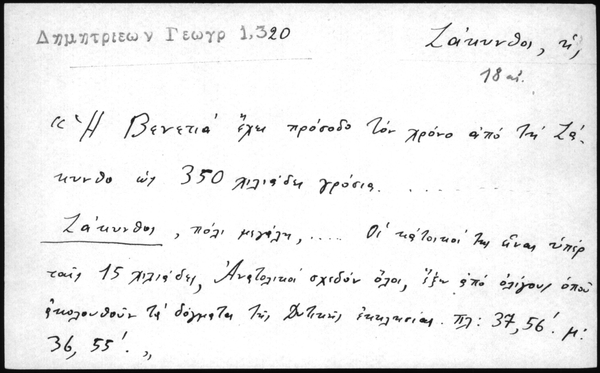 Δημητριεων Γεωγρ 1,320
Ζάκυνθος, ἡ,
18 αἰ.
«Ἡ Βενετιά ἔχει πρόσοδο τόν χρόνο ἀπό τή Ζά-
κυνθο ὡς 350 χιλιάδες γρόσια. . . . . . . .
Ζάκυνθος, πόλι μεγάλη, ..... Οἱ κάτοικοί της εἶναι ὑπέρ
ταῖς 15 χιλιάδες, Ἀνατολικοί σχεδόν ὅλοι, ἔξω ἀπό ὀλίγους ὁποῦ
ἀκολουθοῦν τά δόγματα τῆς Δυτικῆς ἐκκλησίας. πλ: 37,56'. μ:
36,55'. »